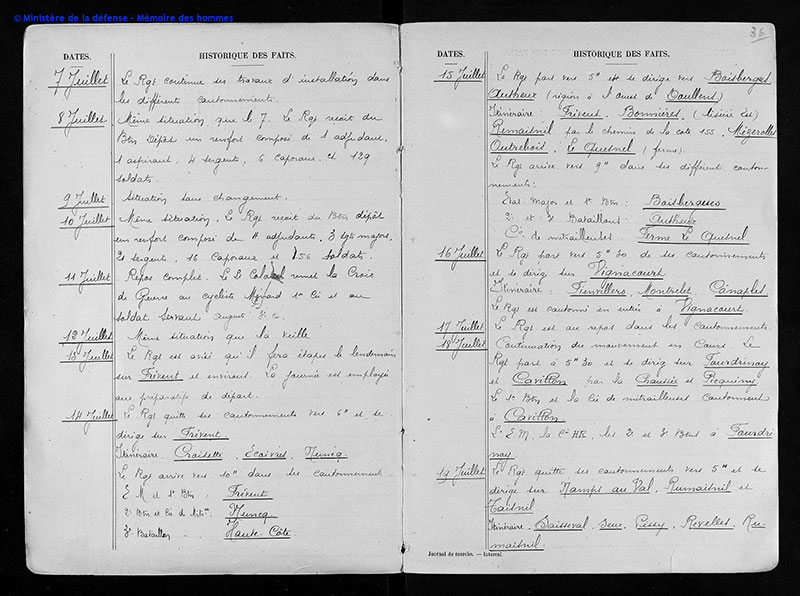 © Ministère de la défense - Mémoire des hommes
DATES. HISTORIQUE DES FAITS.
7 Juillet Le Rgt continue ses travaux d'installation dans
les différents cantonnements.
8 Juillet Même situation que le 7. Le Rgt reçoit du
Btn Dépôt un renfort composé de 1 adjudant,
1 aspirant, 4 sergents, 6 caporaux et 129
soldats.
9 Juillet Situation sans changement.
10 Juillet Même situation. Le Rgt reçoit du Btn dépôt
un renfort composé de 4 adjudants, 3 sgts majors,
2 sergents, 16 caporaux et 156 soldats.
11 Juillet Repos complet. Le Lt Colonel remet la Croix
de Guerre au cycliste 1e Cie et au
soldat Servant auguste
12 Juillet Même situation que la veille
13 Juillet Le Rgt est avisé qu'il fera étapes le lendemain
sur Frévent et environs. La journée est employée
aux préparatifs de départ.
14 Juillet Le Rgt quitte ses cantonnements vers 4h et se
dirige sur Frévent
Itinéraire, Croisette, Ecoivres, Nuncq
Le Rgt arrive vers 10h dans ses cantonnements
E M et 1e Btn : Frévent
2e Btn et Cie de Mitr. : Nuncq
3e Bataillon Haute-Côte
36
DATES. HISTORIQUE DES FAITS.
15 Juillet Le Rgt part vers 5h et se dirige vers Boisbergues
Autheux (région à l'ouest de Doullens)
Itinéraire : Frévent, Bonnières, (lisière Est)
Remaisnil par le chemin de la cote 155, Mézerolles
Outrebois, Le Quesnel (ferme).
Le Rgt arrive vers 9h dans ses différents canton-
nements:
Etat Major et 1e Btn : Boisbergues
2e et 3e Bataillons : Autheux
Cie de mitrailleuses : Ferme Le Quesnel
16 Juillet Le Rgt part vers 5h 30 de ses cantonnements
et se dirige sur Vignacourt
Itinéraire : Fienvillers, Montrelet, Canaples
Le Rgt est cantonné en entier à Vignacourt.
17 Juillet Le Rgt est au repos dans les cantonnements.
18 Juillet Continuation du mouvement en Cours. Le
Rgt part à 5h 30 et se dirige sur Fourdrinoy
et Cavillon par la Chaussée et Picquigny
Le 1e Btn et la Cie de mitrailleuses cantonnent
à Cavillon
L'E.M. la Cie HR, les 2e et 3e Btns à Fourdri
noy
19 Juillet Le Rgt quitte ses cantonnements vers 5h et se
dirige sur Namps au Val, Rumaisnil et
Taisnil
Itinéraire, Saisseval, Seux, Pissy, Revelles, Ru-
maisnil.
Journal de marche. — Intercal.